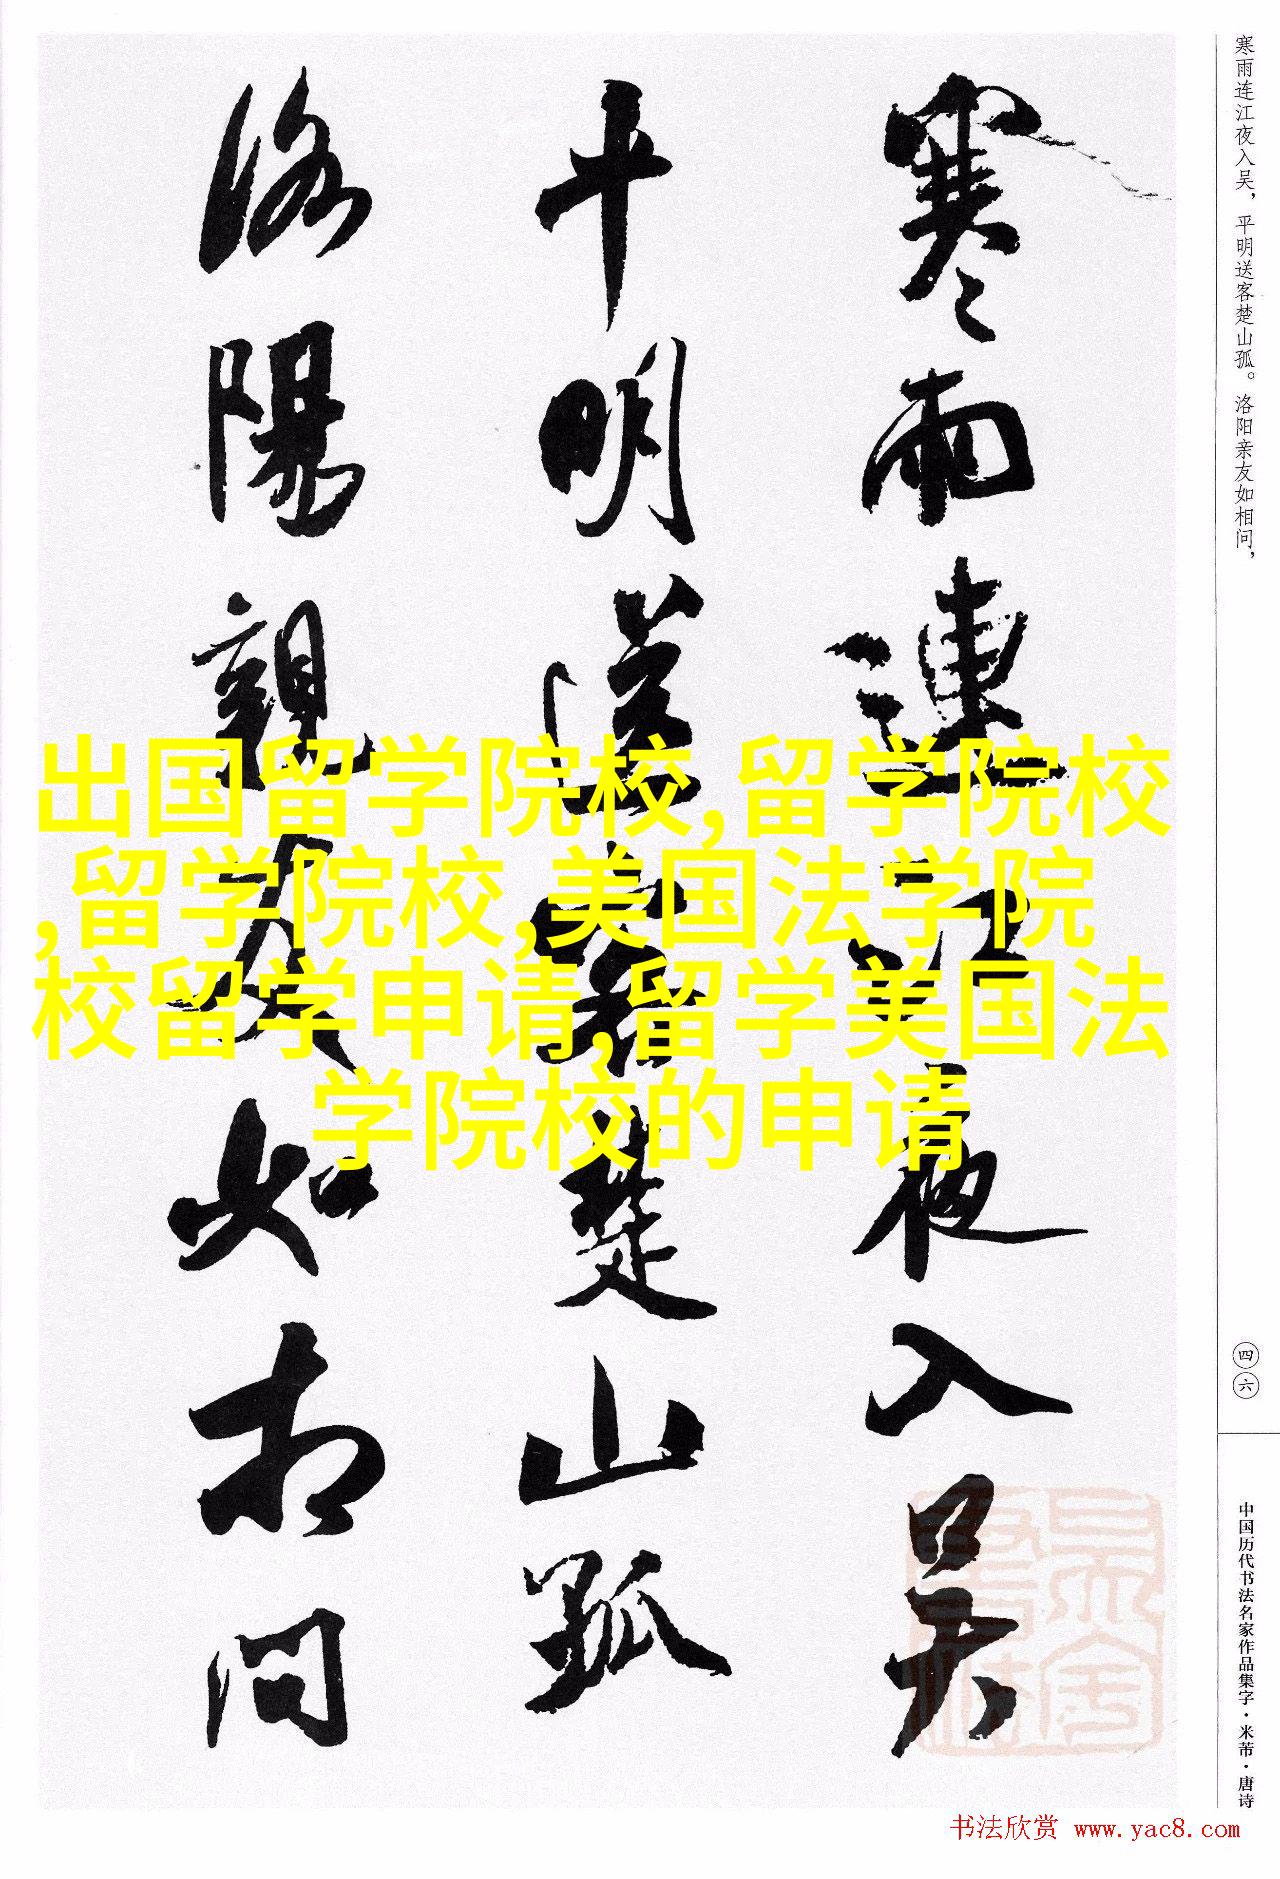 寒雨连江夜入吴，平明送客楚山孤。洛阳亲友如相问，
寒雨連江夜入吴
平明送客楚山孤
洛陽親友如相問
出国留学院校,留学院校
,留学院校,美国法学院
校留学申请,留学美国法
学院校的申请
四六
中国历代书法名家作品集字·米芾·唐诗
书法欣赏 www.yac8.com